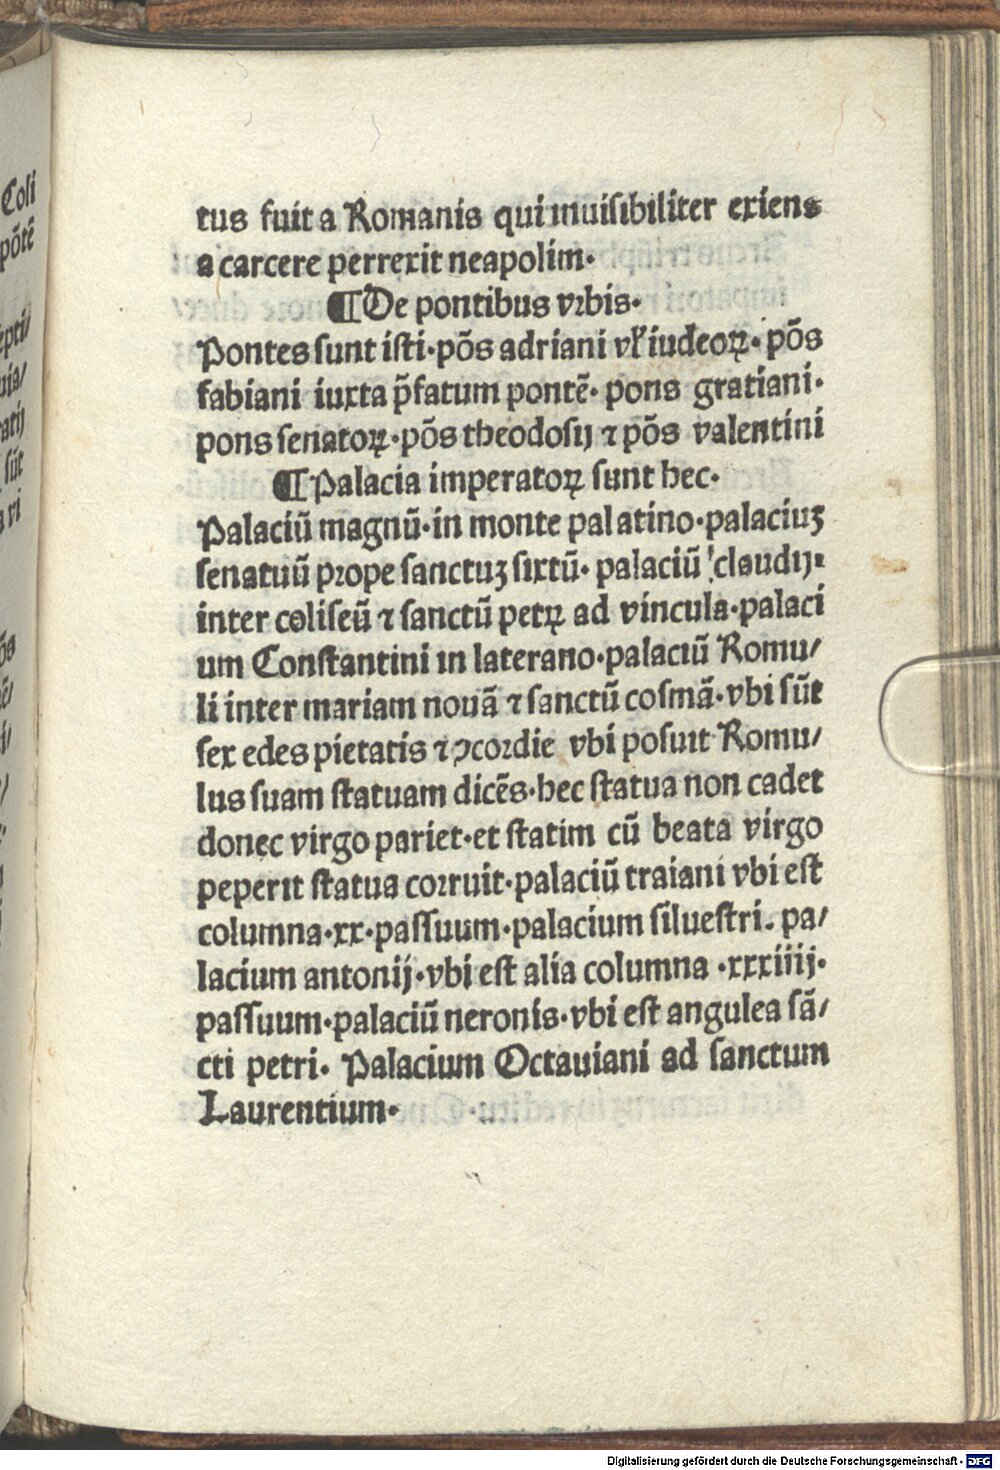 Coli
põtẽ
epti/
uia/
atij
sũt
a vi
õs
nẽ/
tus fuit a Romanis qui inuisibiliter exiens
a carcere perrexit neapolim·
¶De pontibus vrbis·
Pontes sunt isti·põs adriani vł iudeoꝝ·põs
fabiani iuxta p̃fatum pontẽ· pons gratiani·
pons senatoꝝ·põs theodosij ⁊ põs valentini
¶Palacia imperatoꝝ sunt hec·
Palaciũ magnũ·in monte palatino·palaciuꝫ
senatuũ prope sanctuꝫ sixtũ· palaciũ claudij·
inter coliseũ ⁊ sanctũ petꝝ ad vincula·palaci
um Constantini in laterano·palaciũ Romu/
li inter mariam nouã ⁊ sanctũ cosmã·vbi sũt
sex edes pietatis ⁊ ꝯcordie vbi posuit Romu/
lus suam statuam dicẽs·hec statua non cadet
donec virgo pariet·et statim cũ beata virgo
peperit statua corruit·palaciũ traiani vbi est
columna·xx·passuum·palacium siluestri. pa/
lacium antonij·vbi est alia columna ·xxxiiij·
passuum·palaciũ neronis·vbi est angulea sã/
cti petri· Palacium Octauiani ad sanctum
Laurentium·
Digitalisierung gefördert durch die Deutsche Forschungsgemeinschaft - DFG